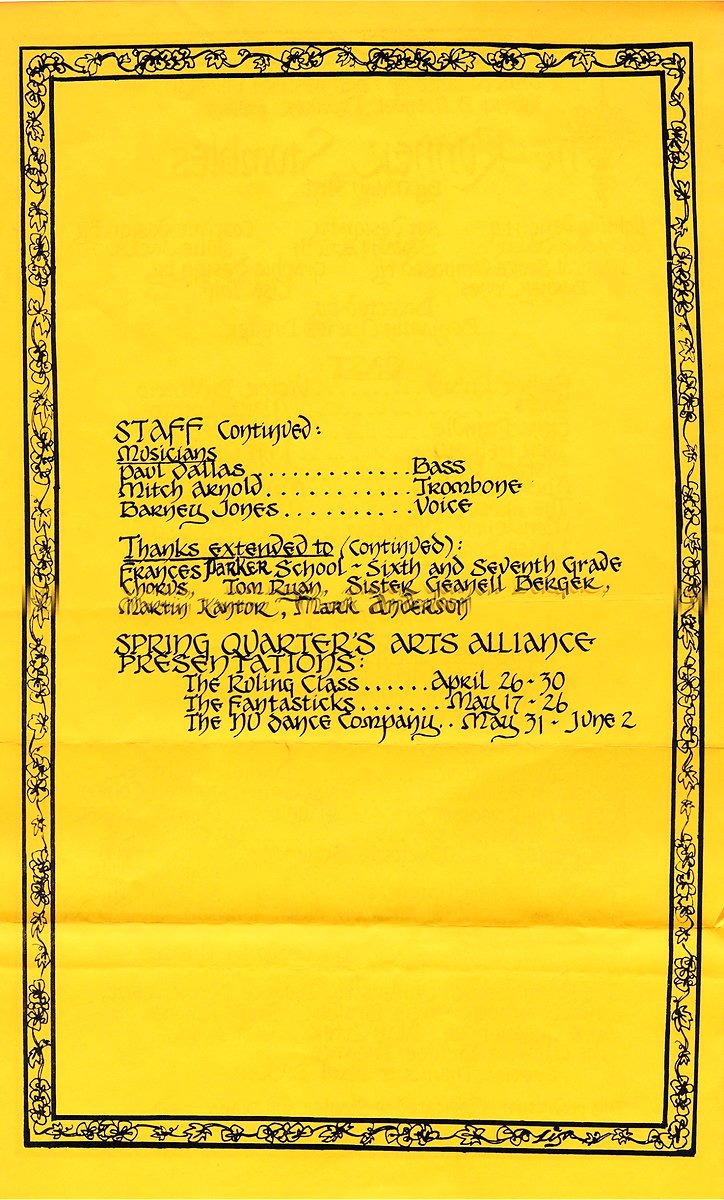 STAFF Continued:
Musicians
Paul Dallas ............ Bass
Mitch Arnold .......... Trombone
Barney Jones .......... Voice
Thanks extended to (continued):
Frances PARKER School ~ Sixth and Seventh Grade
Chorus, Tom Ryan, Sister Geanell Berger,
Martin Kantor, Mark Anderson
SPRING QUARTER'S ARTS ALLIANCE
PRESENTATIONS:
The Ruling Class ...... April 26 - 30
The Fantasticks ....... May 17 - 26
The NU Dance Company .. May 31 - June 2